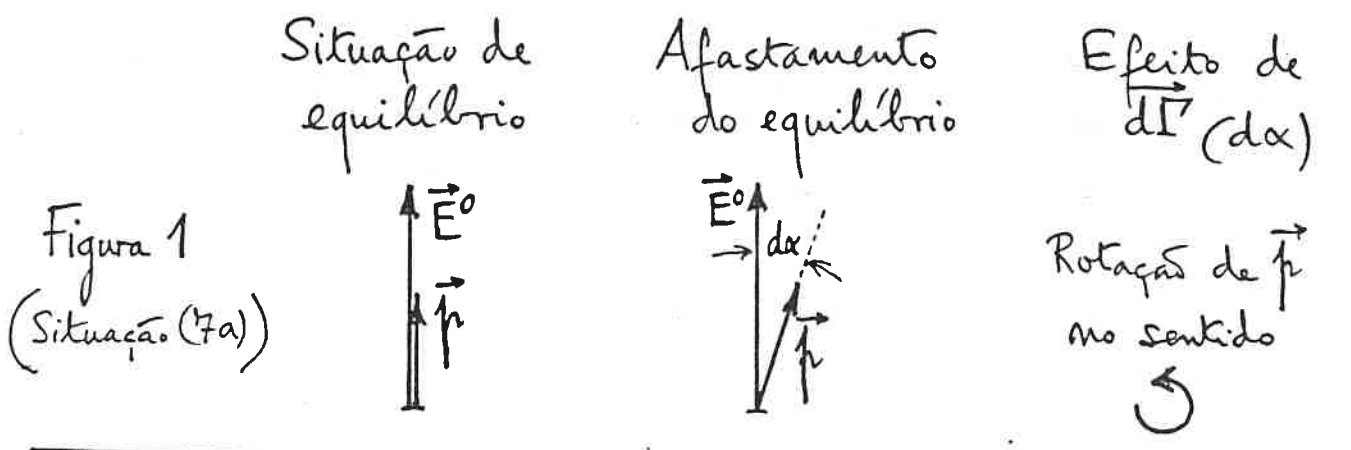 Situação de
equilíbrio
Afastamento
do equilíbrio
Efeito de
dΓ⃗ (dα)
Figura 1
(Situação (7a))
E⃗⁰
p⃗
E⃗⁰
dα
p⃗
Rotação de p⃗
no sentido